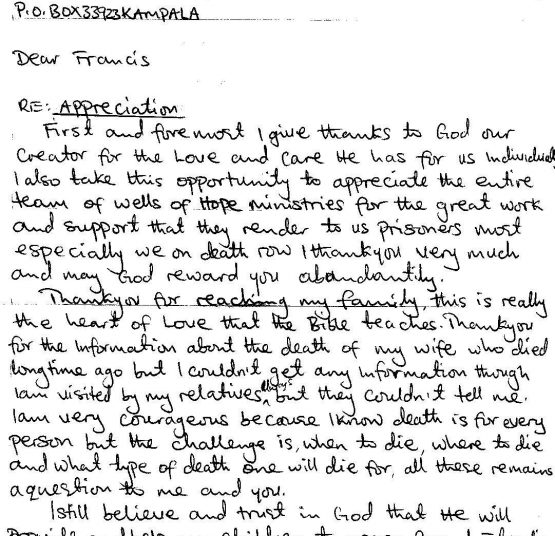 P.O. BOX 33923 KAMPALA
Dear Francis
RE: Appreciation
First and foremost I give thanks to God our
Creator for the Love and care He has for us Individually
I also take this opportunity to appreciate the entire
team of wells of Hope ministries for the great work
and support that they render to us prisoners most
especially we on death row I thankyou very much
and may God reward you abandantily.
Thankyou for reaching my family, this is really
the heart of Love that the Bible teaches. Thankyou
for the Information about the death of my wife who died
longtime ago but I couldn't get any Information though
Iam visited by my relatives, but they couldn't tell me.
Iam very courageous because I know death is for every
person but the challenge is, when to die, where to die
and what type of death one will die for, all these remains
a question to me and you.
I still believe and trust in God that He will